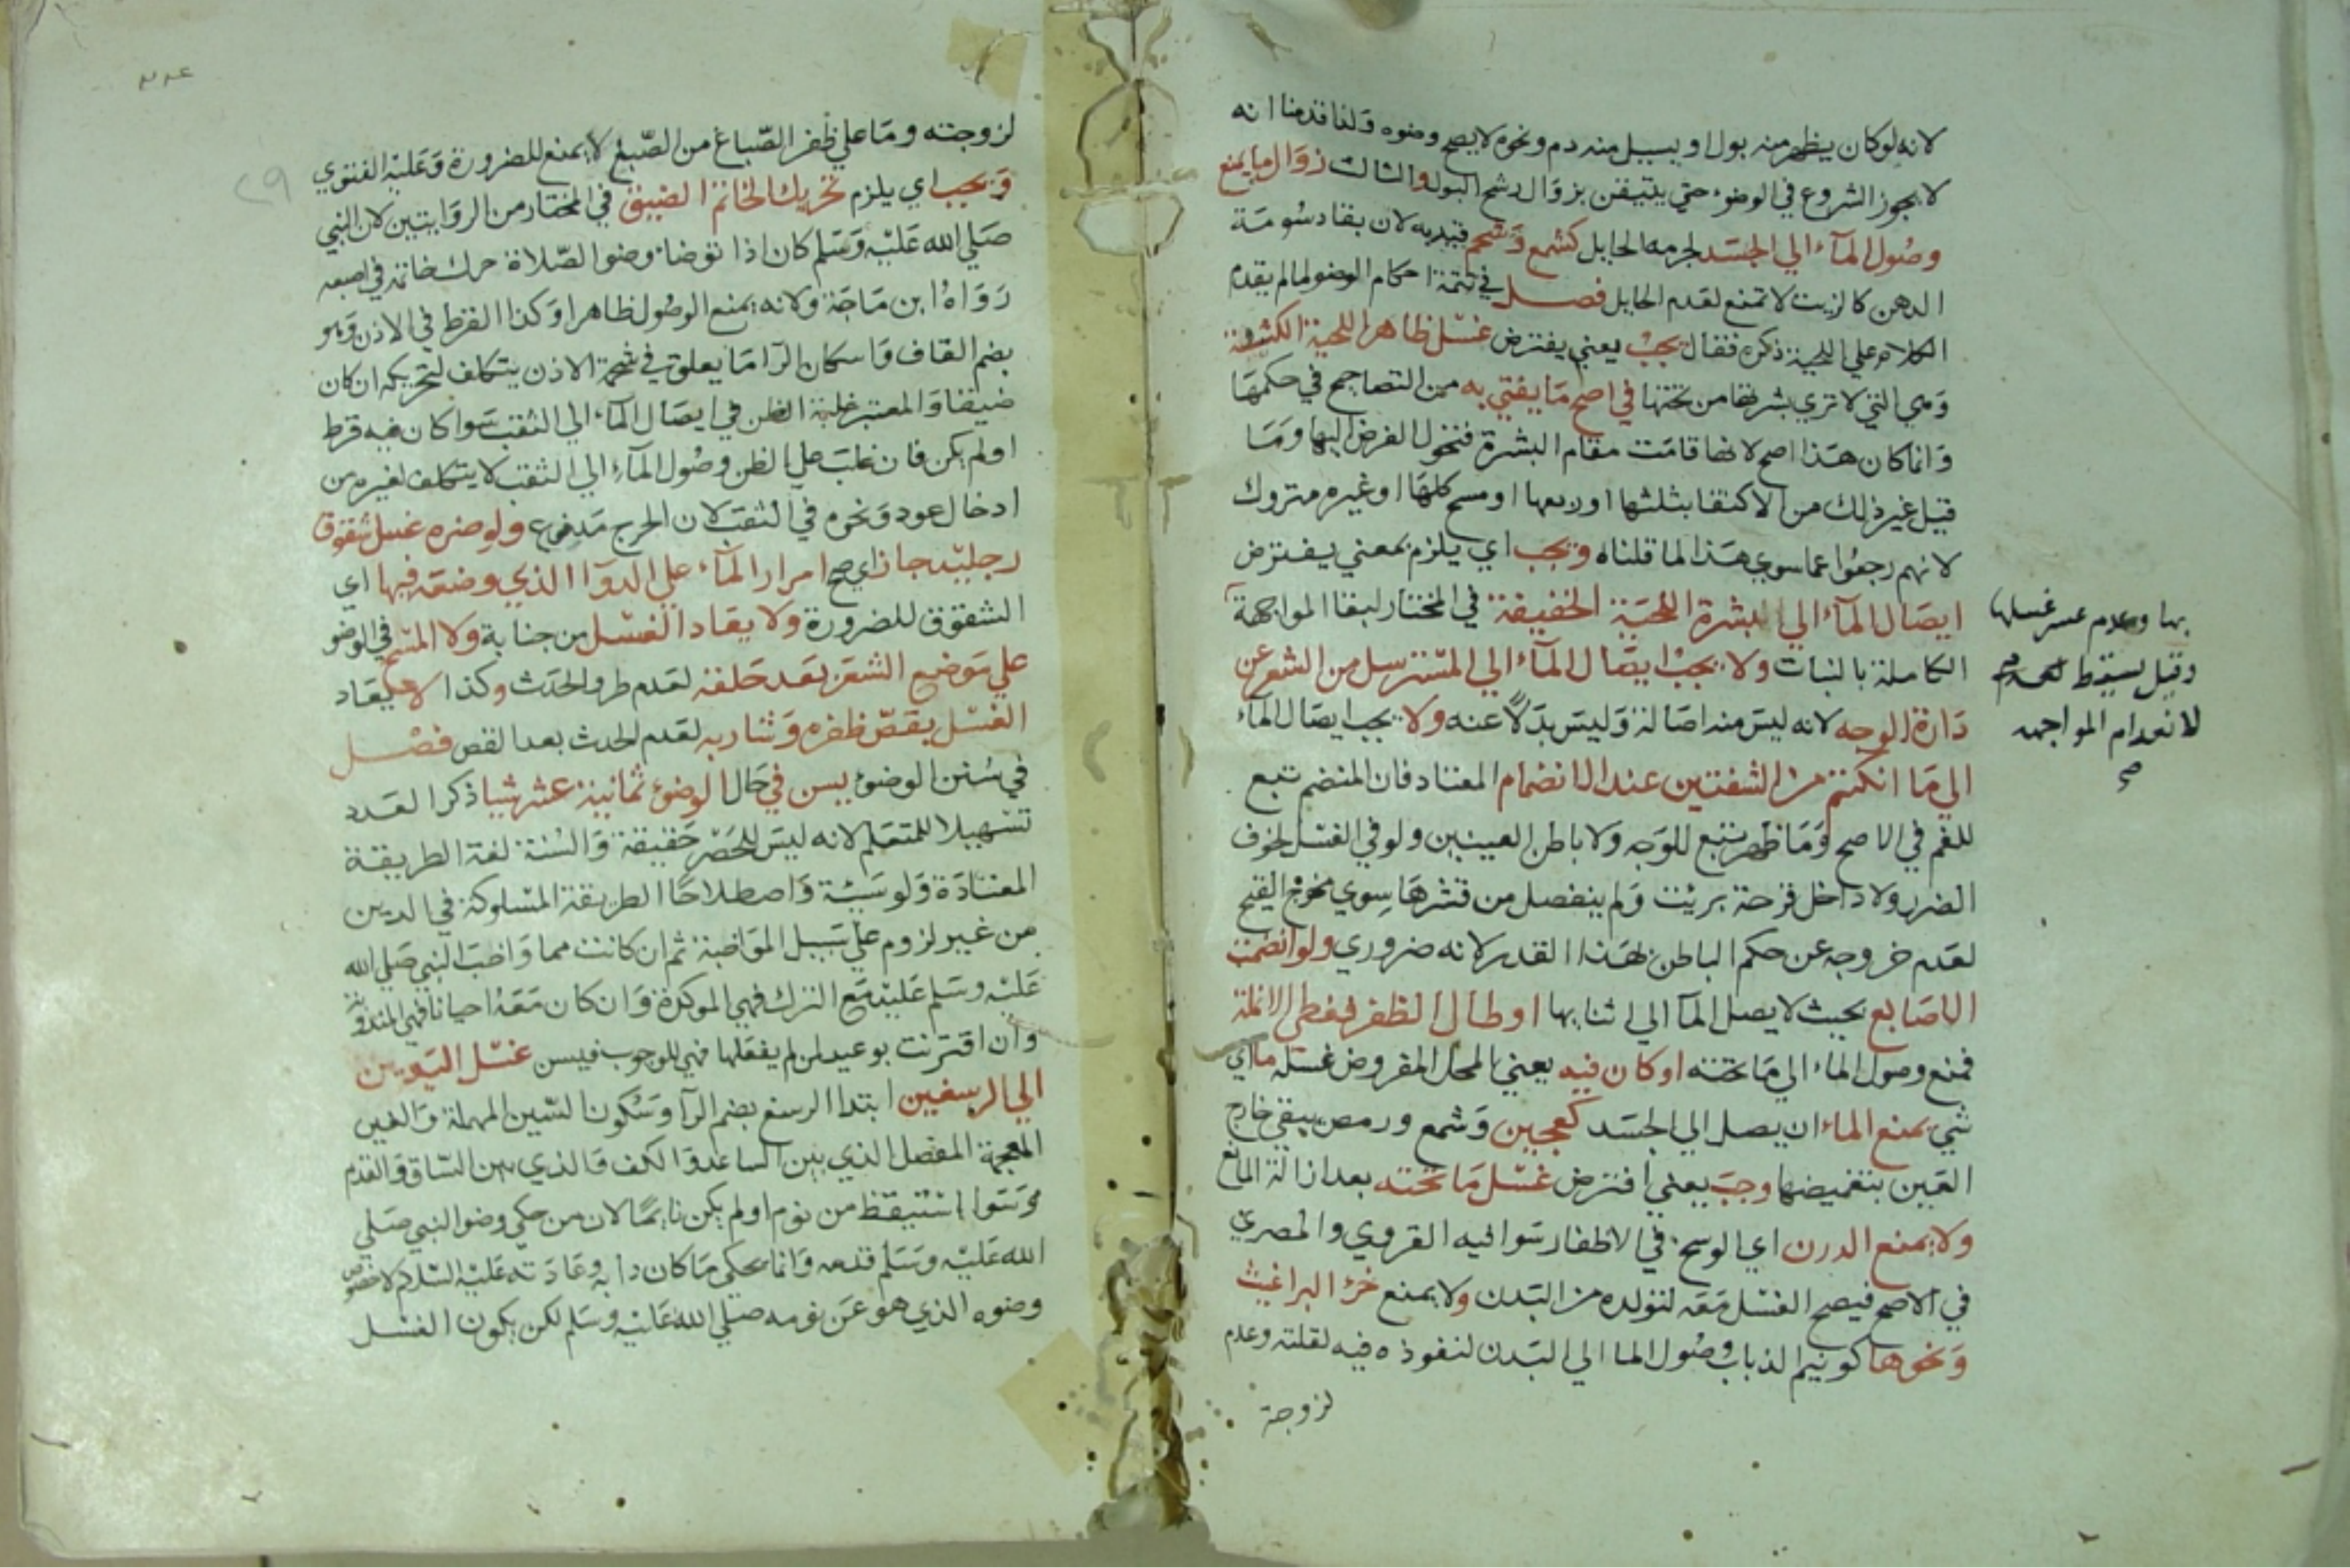 لانه لو كان يظهر منه بول او يسيل منه دم ونحوه لا يصح وضوه ولذا قدمنا انه
لا يجوز الشروع في الوضوء حتي يتيقن بزوال رشح البول والثالث زوال ما يمنع
وصول المآء الي الجسد لجرمه الحايل كشمع وشحم قيد به لان بقا دسومة
الدهن كالزيت لا تمنع لعدم الحايل فصل في تتمة احكام الوضو لما لم يقدم
الكلام علي اللحية ذكره فقال يجب يعني يفترض غسل ظاهر اللحية الكثيفة
وهي التي لا تري بشرتها من تحتها في اصح ما يفتي به من التصاحيح في حكمها
وانما كان هذا اصح لانها قامت مقام البشرة فتحول الفرض اليها وما
قيل غير ذلك من الاكتفا بثلثها او ربعها او مسح كلها او غيره متروك
لانهم رجعوا عما سوي هذا لما قلناه ويجب اي يلزم بمعني يفترض
ايصال المآء الي البشرة اللحية الخفيفة في المختار لبقا المواجهة
بها وعدم عسر غسلها
وقيل يسقط
لانعدام المواجهه
صح
الكاملة بالنبات ولا يجب ايصال المآء الي المسترسل من الشعر عن
دارة الوجه لانه ليس منه اصالة وليس بدلاً عنه ولا يجب ايصال المآء
الي ما انكتم من الشفتين عند الانضمام المعتاد فان المنضم تبع
للفم في الاصح وما ظهر تبع للوجه ولا باطن العينين ولو في الغسل لخوف
الضرر ولا داخل قرحة برئت ولم ينفصل من قشرها سوي مخرج القيح
لعدم خروجه عن حكم الباطن بهذا القدر لانه ضروري ولو انضمت
الاصابع بحيث لا يصل المآ الي اثنايها او طال الظفر فغطي الانملة
فمنع وصول الماء الي ما تحته او كان فيه يعني المحل المفروض غسله ما اي
شي يمنع الماء ان يصل الي الجسد كعجين وشمع ورمص يبقي خارج
العين بتغميضها وجب يعني افترض غسل ما تحته بعد ازالة المانع
ولا يمنع الدرن اي الوسخ في الاظفار سوا فيه القروي والمصري
في الاصح فيصح الغسل معه لتولده من البدن ولا يمنع خرء البراغيث
ونحوها كونيم الذباب وصول الما الي البدن لنفوذه فيه لقلته وعدم
لزوجة
٢٩
لزوجته وما علي ظفر الصباغ من الصبغ لا يمنع للضرورة وعليه الفتوي
ويجب اي يلزم تحريك الخاتم الضيق في المختار من الروايتين لان النبي
صلي الله عليه وسلم كان اذا توضاء وضوا الصلاة حرك خاتمه في اصبعه
رواه ابن ماجة ولانه يمنع الوصول ظاهرا وكذا القرط في الاذن وهو
بضم القاف واسكان الرا ما يعلق في شحمة الاذن يتكلف لتحريكه ان كان
ضيقا والمعتبر غلبة الظن في ايصال المآء الي الثقب سوا كان فيه قرط
او لم يكن فان غلب علي الظن وصول المآء الي الثقب لا يتكلف لغيره من
ادخال عود ونحوه في الثقب لان الحرج مدفوع ولو ضره غسل شقوق
رجليه جاز اي صح امرار المآء علي الدوآ الذي وضعه فيها اي
الشقوق للضرورة ولا يعاد الغسل من جنابة ولا المسح في الوضو
علي موضع الشعر بعد حلقه لعدم طرو الحدث وكذا لا يعاد
الغسل بقص ظفره وشاربه لعدم الحدث بعد القص فصل
في سنن الوضوء يسن في حال الوضوء ثمانية عشر شيا ذكر العدد
تسهيلا للمتعلم لانه ليس للحصر حقيقة والسنة لغة الطريقة
المعتادة ولو سيئة واصطلاحا الطريقة المسلوكة في الدين
من غير لزوم علي سبيل المواضبة ثم ان كانت مما واضب النبي صلي الله
عليه وسلم عليه مع الترك فهي الموكدة وان كان معه احيانا فهي المندوبة
وان اقترنت بوعيد لمن لم يفعلها فهي للوجوب فيسن غسل اليدين
الي الرسغين ابتدا الرسغ بضم الرآ وسكون السين المهملة والغين
المعجمة المفصل الذي بين الساعد والكف والذي بين الساق والقدم
وسوا استيقظ من نوم او لم يكن نايما لان من حكي وضو النبي صلي
الله عليه وسلم قدمه وانما يحكي ما كان دابه وعادته عليه السلام لا خصوص
وضوه الذي هو عن نومه صلي الله عليه وسلم لكن يكون الغسل